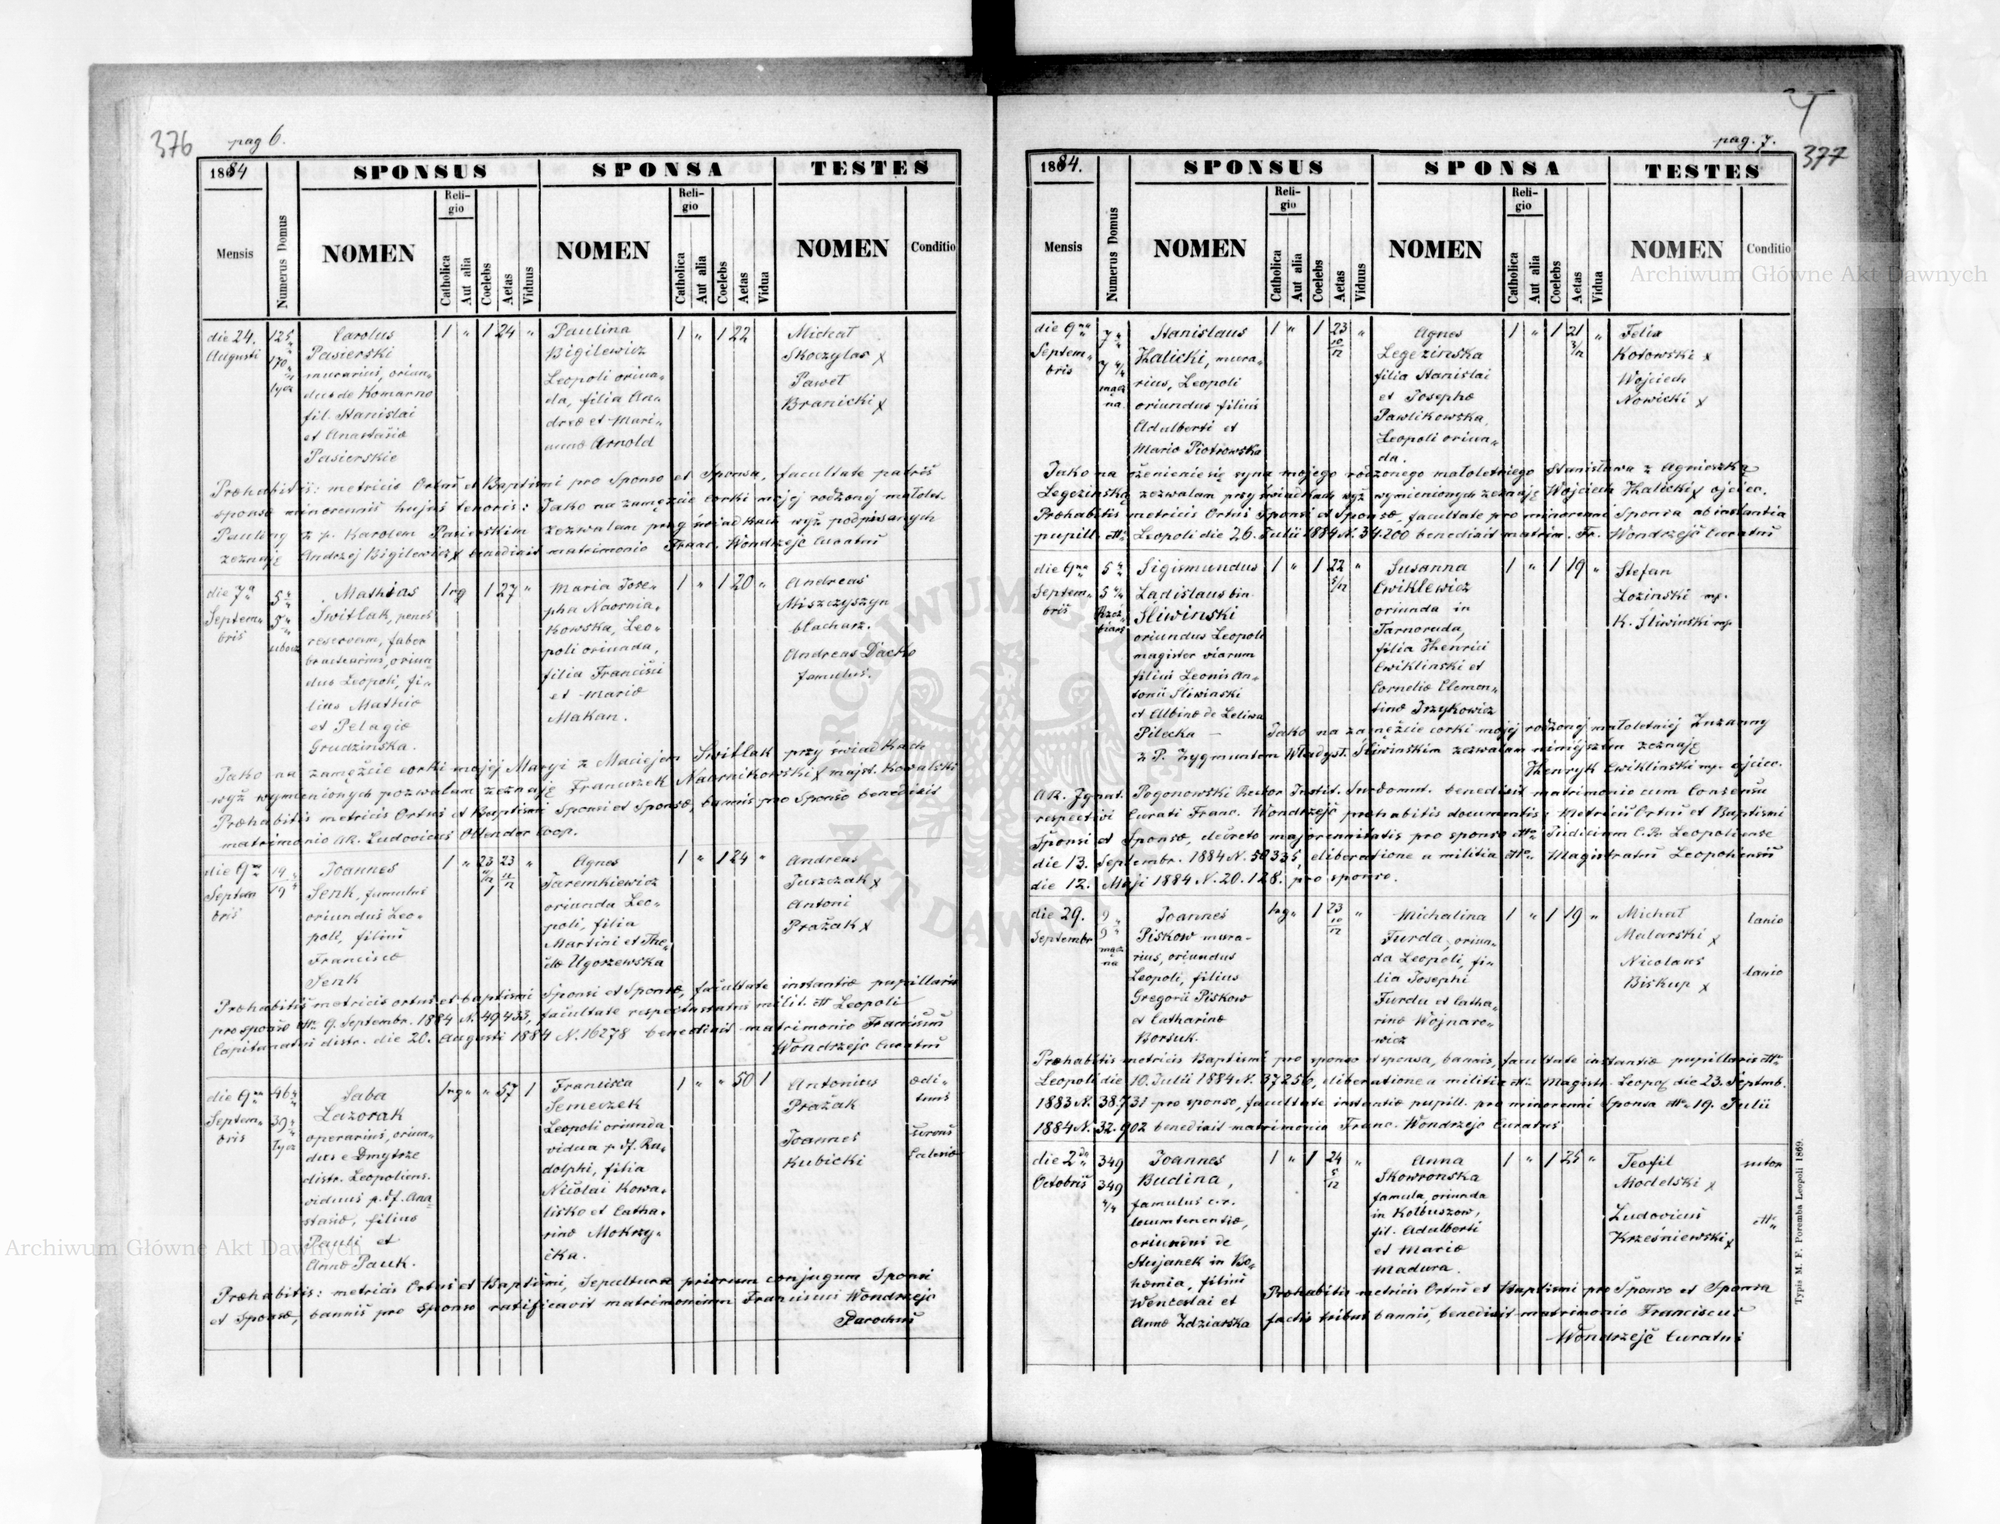 376
pag 6.
1884
SPONSUS
SPONSA
TESTES
Mensis
Numerus Domus
NOMEN
Religio
Catholica
Aut alia
Coelebs
Aetas
Viduus
NOMEN
Religio
Catholica
Aut alia
Coelebs
Aetas
Vidua
NOMEN
Conditio
die 24. Augusti
125 170
Carolus
Pasierski
murarius, oriun-
dus de Komarno
fil. Stanislai
et Anastasiæ
Pasierskie
1 " 1 24 "
Paulina
Bigilewicz
Leopoli oriun-
da, filia An-
dreæ et Mari-
annæ Arnold
1 " 1 22
Michał
Skoczylas x
Paweł
Branicki x
Præhabitis: metricis Ortus et Baptismi pro Sponso et Sponsa, facultate patris
sponsæ minorennis hujus tenoris: Jako na zamęzcie corki mojej rodzonej małolet.
Pauliny z p. Karolem Pasierskim zezwalam przy świadkach wyż podpisanych
zeznaję Andrzej Bigilewicz x benedixit matrimonio Franc. Wondrzejc Curatus
die 7a Septembris
Mathias
Switlak, penes
reservam, faber
bractearius, oriun
dus Leopoli, fi-
lius Mathiæ
et Pelagiæ
Grudzinska.
1 rg 1 27 "
Maria Jose-
pha Naornia-
kowska, Leo-
poli oriunda,
filia Francisci
et Mariæ
Makan.
1 " 1 20 "
Andreas
Miszczyszyn
blacharz.
Andreas Dacko
famulus.
Jako na zamęzcie corki mojej Maryi z Maciejem Switlak przy świadkach
wyż wymienionych pozwalam zeznaję Franciszek Naornikowski x majst. Kowalski
Præhabitis metricis Ortus et Baptismi Sponsi et Sponsæ, bannis pro Sponso benedixit
matrimonio AR. Ludovicus Ollender Coop.
die 9na Septembris
19 19
Joannes
Senk, famulus
oriundus Leo-
poli, filius
Franciscæ
Senk
1 " 23 23 "
Agnes
Jaremkiewicz
oriunda Leo-
poli, filia
Martini et The-
clæ Ugorzewska
1 " 1 24 "
Andreas
Juszczak x
Antoni
Prażak x
Præhabitis metricis ortus et baptismi Sponsi et Sponsæ, facultate instantiæ pupillaris
pro sponso dtto 9. Septembr. 1884 N. 49433, facultate respectu status milit. dtt Leopoli
Capitanatus distr. die 20. Augusti 1884 N. 16278 benedixit matrimonio Franciscus
Wondrzejc Curatus
die 9na Septembris
46 39
Saba
Lazorak
operarius, oriun-
dus e Dmytrze
distr. Leopoliens.
viduus p. df. Ana
stasiæ, filius
Pauli et
Annæ Pauk.
1 rg " " 57 1
Francisca
Semeczek
Leopoli oriunda
vidua p. df. Ru-
dolphi, filia
Nicolai Kowa-
lisko et Catha-
rinæ Mokrzy-
cka.
1 " " 50 1
Antonius
Prażak
Joannes
Kubicki
ædi-
tuus
Præhabitis: metricis Ortus et Baptismi, Sepulturæ priorum conjugum Sponsi
et Sponsæ, bannis pro sponso ratificavit matrimonium Franciscus Wondrzejc
Parochus
pag. 7.
377
1884.
SPONSUS
SPONSA
TESTES
Mensis
Numerus Domus
NOMEN
Religio
Catholica
Aut alia
Coelebs
Aetas
Viduus
NOMEN
Religio
Catholica
Aut alia
Coelebs
Aetas
Vidua
NOMEN
Conditio
die 9na Septembris
7 7 4/4
Stanislaus
Halicki, mura-
rius, Leopoli
oriundus filius
Adalberti et
Mariæ Piotrowska
1 " 1 23 10/12 "
Agnes
Legezinska
filia Stanislai
et Josephæ
Pawlikowska,
Leopoli oriun-
da.
1 " 1 21 3/12 "
Felix
Kotowski x
Wojciech
Nowicki x
Jako na ożenienie się syna mojego rodzonego małoletniego Stanisława z Agnieszką
Legezinską zezwalam przy świadkach wyż wymienionych zeznaję Wojciech Halicki x ojciec.
Præhabitis metricis Ortus Sponsi et Sponsæ, facultate pro minorenni Sponsa ab instantia
pupill. dtt Leopoli die 26. Julii 1884 N. 34.200 benedixit matrim. Fr. Wondrzejc Curatus
die 9na Septembris
5 5 4/4
Sigismundus
Ladislaus bin.
Sliwinski
oriundus Leopoli
magister viarum
filius Leonis An-
tonii Sliwinski
et Albinæ de Leliwa
Pilecka
1 " 1 22 5/12
Susanna
Cwiklewicz
oriunda in
Tarnoruda,
filia Henrici
Cwiklinski et
Corneliæ Clemen-
tinæ Irzykowicz
1 " 1 19 "
Stefan
Lozinski mp.
K. Sliwinski mp.
Jako na zamęzcie corki mojej rodzonej małoletniej Zuzanny
z P. Zygmuntem Władysł. Sliwinskim zezwalam niniejszem zeznaję
Henryk Cwiklinski mp. ojciec.
AR. Zygmt. Pogonowski Rector Instit. Surdomut. benedixit matrimonio cum Consensu
respectivi Curati Franc. Wondrzejc præhabitis documentis: Metricis Ortus et Baptismi
Sponsi et Sponsæ, decreto majorennitatis pro sponso dtto Judicium C.R. Leopoliense
die 13. Septembr. 1884 N. 50335, eliberatione a militia dtto Magistratus Leopoliensis
die 12. Maji 1884 N. 20.128. pro sponso.
die 29. Septembr
9 9
Joannes
Piskow mura-
rius, oriundus
Leopoli, filius
Gregorii Piskow
et Catharinæ
Borsuk.
1 rg " 1 23 10/12 "
Michalina
Furda, oriun-
da Leopoli, fi-
lia Josephi
Furda et Catha-
rinæ Wojnaro-
wicz
1 " 1 19 "
Michał
Malarski x
Nicolaus
Biskup x
lanio
lanio
Præhabitis metricis Baptismi pro sponso et sponsa, bannis, facultate instantiæ pupillaris dtto
Leopoli die 10. Julii 1884 N. 37256, eliberatione a militia dtto Magistr. Leopol. die 23. Septmb.
1883 N. 38.731 pro sponso, facultate instantiæ pupill. pro minorenni Sponsa dtto 19. Julii
1884 N. 32.902 benedixit matrimonio Franc. Wondrzejc Curatus
die 2da Octobris
349 349 4/4
Joannes
Budina,
famulus c.r.
locumtenentiæ,
oriundus de
Stujanek in Bo-
hæmia, filius
Wenceslai et
Annæ Zdziarska
1 " 1 24 5/12 "
Anna
Skowronska
famula, oriunda
in Kolbuszow,
fil. Adalberti
et Mariæ
Madura.
1 " 1 25 "
Teofil
Modelski x
Ludovicus
Krześniewski x
sutor
dtto
Præhabitis metricis Ortus et Baptismi pro Sponso et Sponsa
factis tribus bannis, benedixit matrimonio Franciscus
Wondrzejc Curatus
Typis M. F. Poremba Leopoli 1869.
Archiwum Główne Akt Dawnych
Archiwum Główne Akt Dawnych
ARCHIWUM GŁÓWNE AKT DAWNYCH